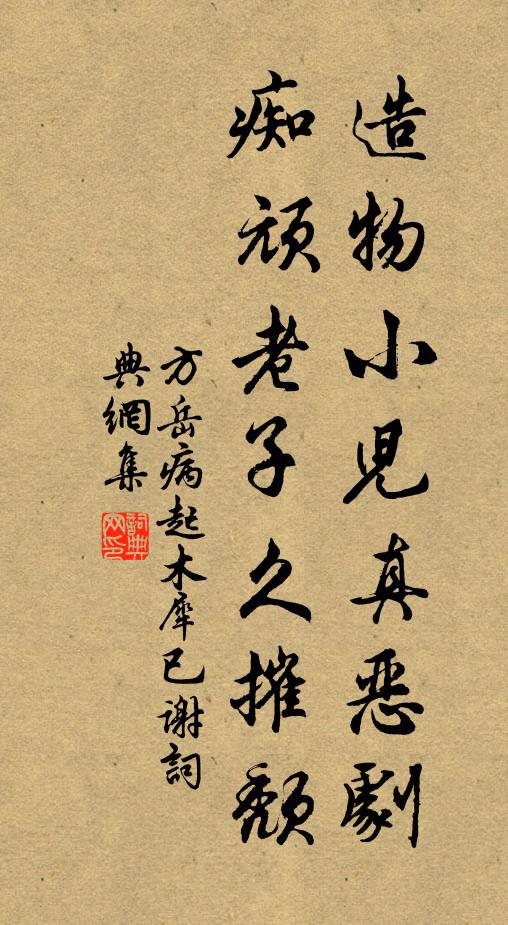 造物小児真恶劇
痴頑老子久摧頽
方岳病起木犀已谢詞
典網集
詞典
网印